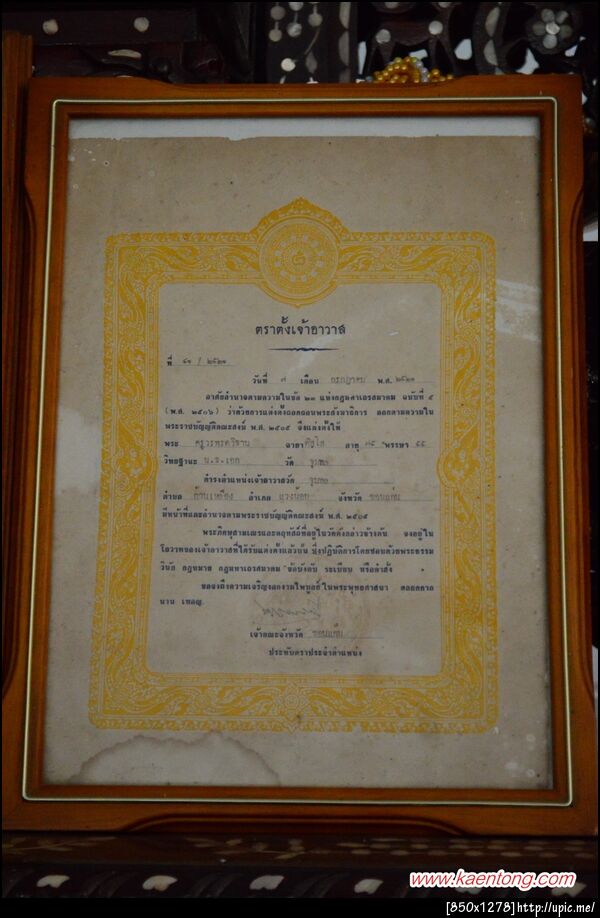 ตราตั้งเจ้าอาวาส
ที่ / ๒๕๒๑
วันที่ ๗ เดือน กรกฎาคม พ.ศ. ๒๕๒๑
อาศัยอำนาจตามความในข้อ ๒๓ แห่งกฎมหาเถรสมาคม ฉบับที่ ๕
(พ.ศ. ๒๕๐๖) ว่าด้วยการแต่งตั้งถอดถอนพระสังฆาธิการ ออกตามความใน
พระราชบัญญัติคณะสงฆ์ พ.ศ. ๒๕๐๕ จึงแต่งตั้งให้
พระ ฉายา อายุ พรรษา
วิทยฐานะ น.ธ.เอก วัด
ดำรงตำแหน่งเจ้าอาวาสวัด
ตำบล อำเภอ แวงน้อย จังหวัด ขอนแก่น
มีหน้าที่และอำนาจตามพระราชบัญญัติคณะสงฆ์ พ.ศ. ๒๕๐๕
พระภิกษุสามเณรและคฤหัสถ์ที่อยู่ในวัดดังกล่าวข้างต้น จงอยู่ใน
โอวาทของเจ้าอาวาสที่ได้รับแต่งตั้งแล้วนั้น ซึ่งปฏิบัติการโดยชอบด้วยพระธรรม
วินัย กฎหมาย กฎมหาเถรสมาคม ข้อบังคับ ระเบียบ หรือคำสั่ง
ขอจงถึงความเจริญงอกงามไพบูลย์ ในพระพุทธศาสนา ตลอดกาล
นาน เทอญ.
เจ้าคณะจังหวัด ขอนแก่น
ประทับตราประจำตำแหน่ง
www.kaentong.com
[850x1278]http://upic.me/